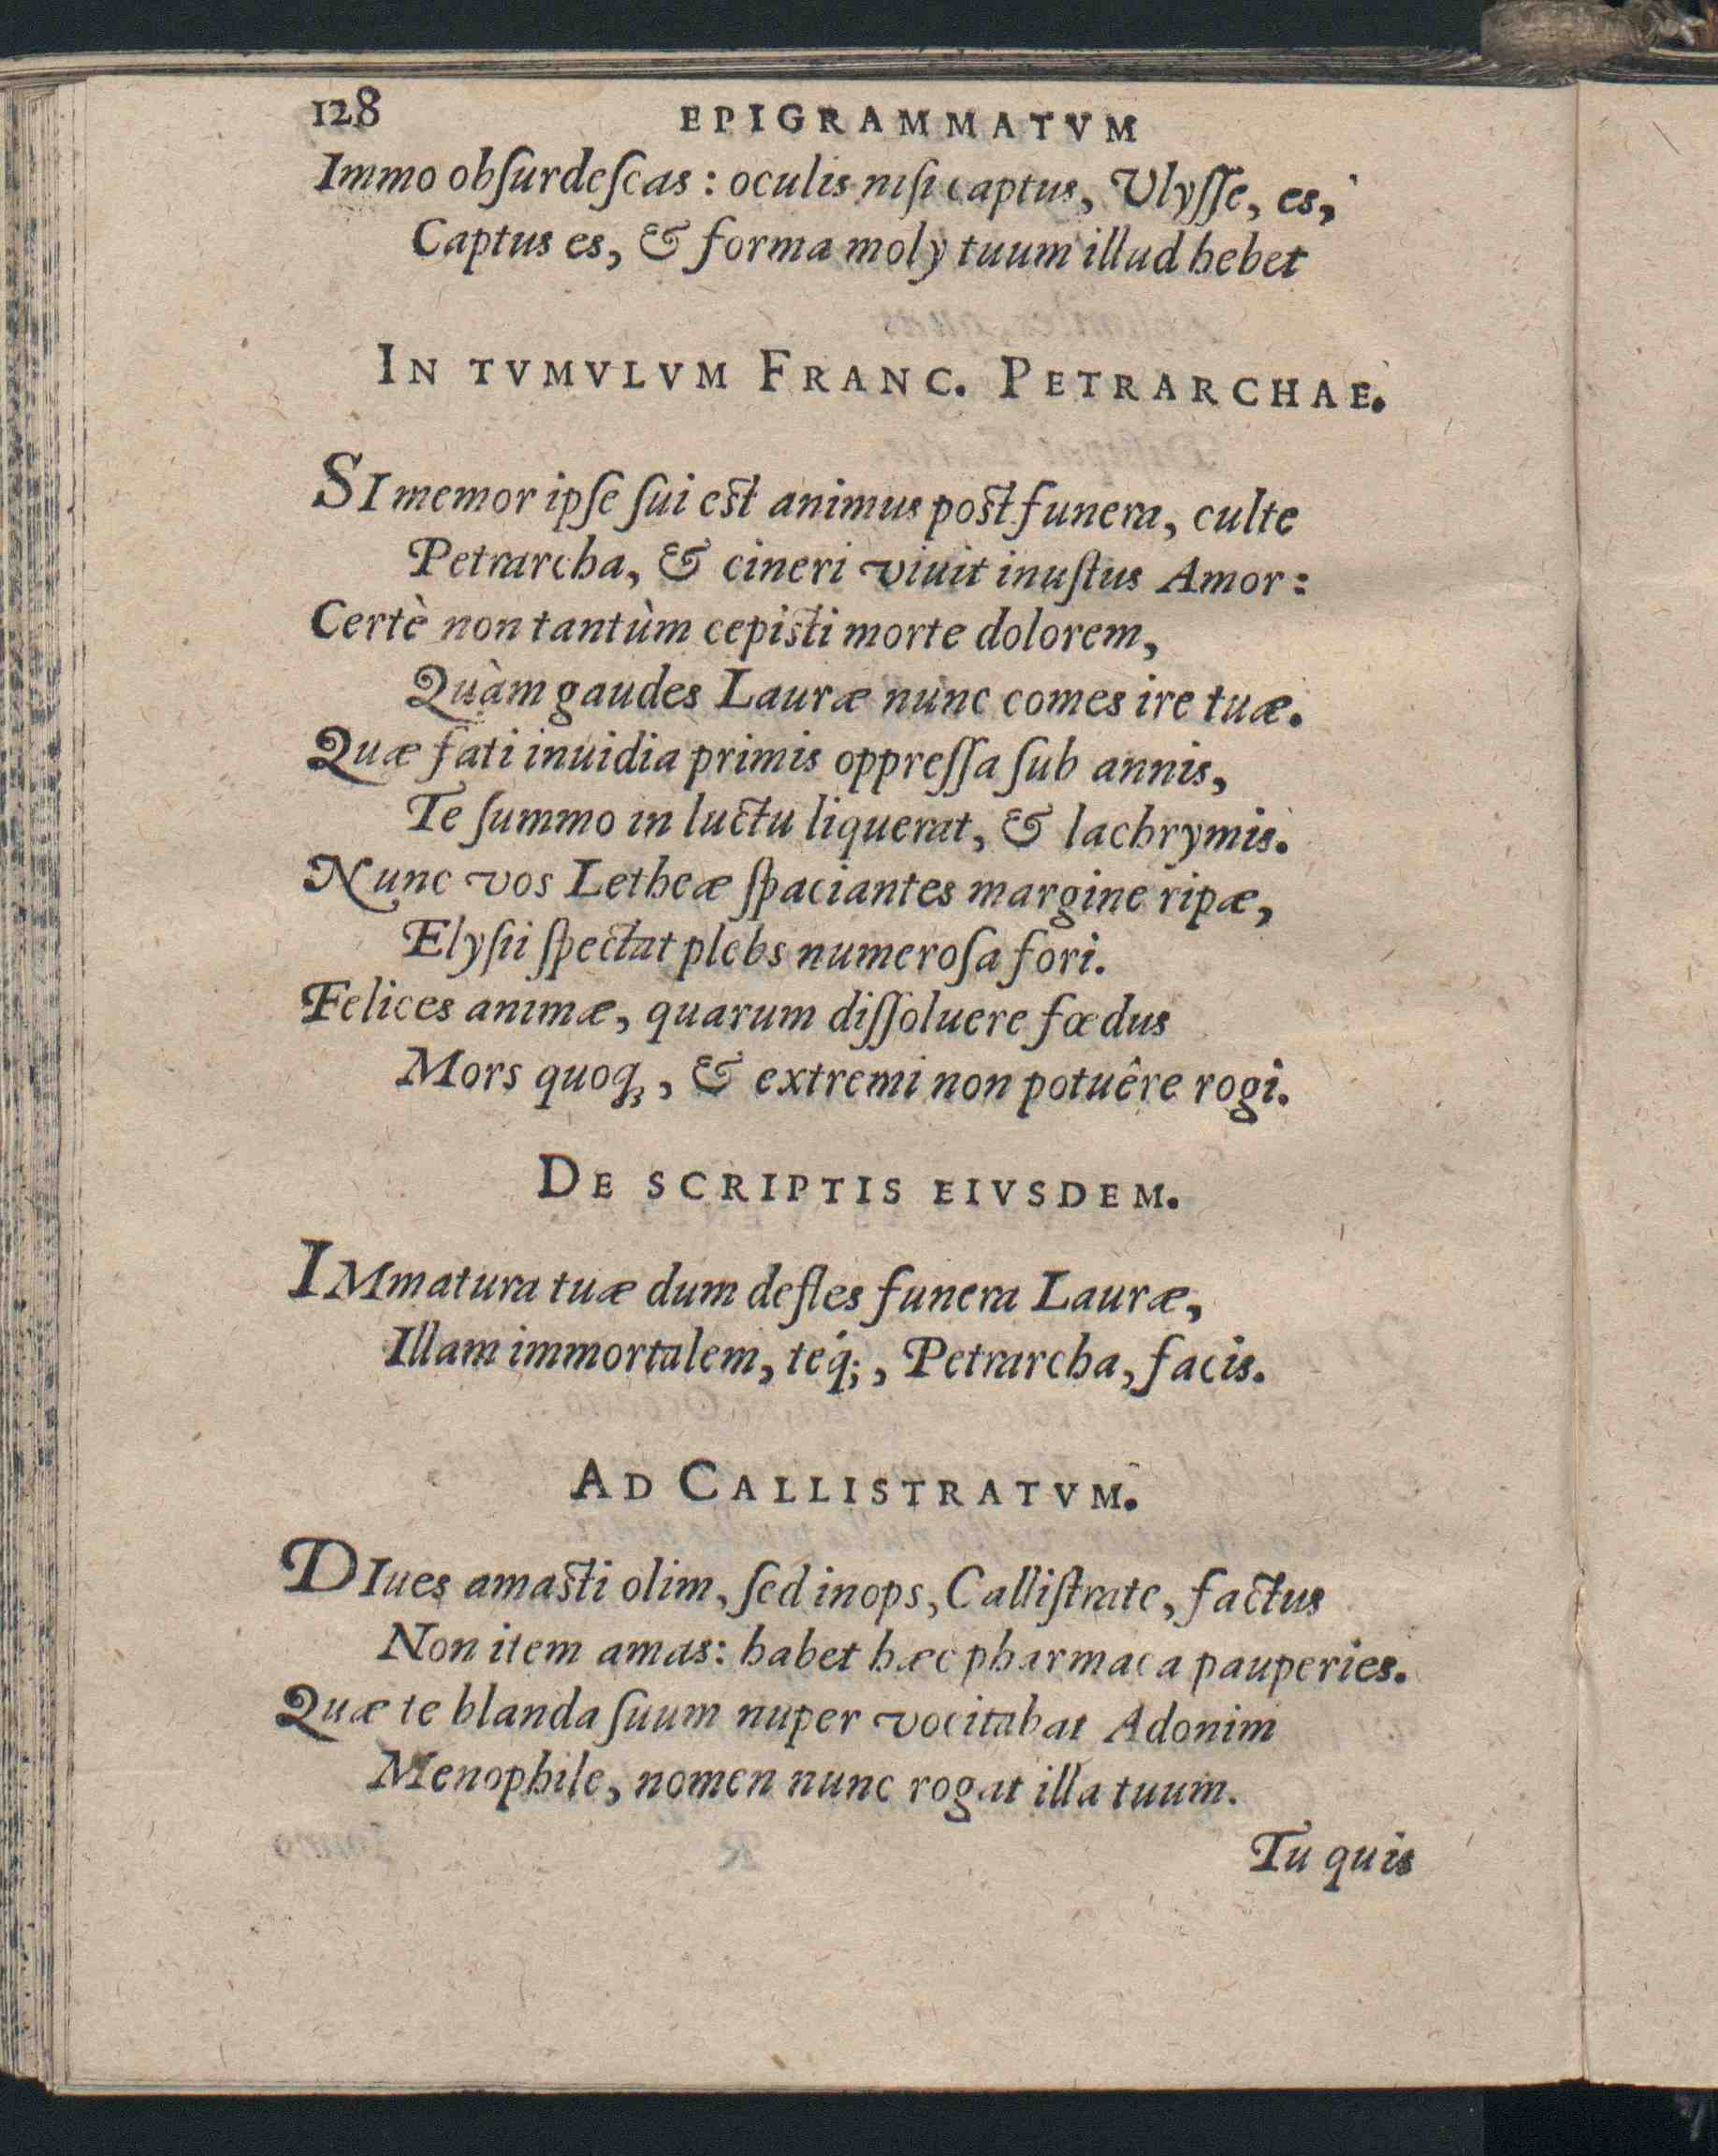 128 EPIGRAMMATVM
Immo obſurdeſcas: oculis niſi captus, Vlyſſe, es,
Captus es, & forma moly tuum illud hebet
IN TVMVLVM FRANC. PETRARCHAE.
SI memor ipſe ſui eſt animus poſt funera, culte
Petrarcha, & cineri viuit inuſtus Amor:
Certè non tantùm cepiſti morte dolorem,
Quàm gaudes Lauræ nunc comes ire tuæ.
Quæ fati inuidia primis oppreſſa ſub annis,
Te ſummo in luctu liquerat, & lachrymis.
Nunc vos Letheæ ſpaciantes margine ripæ,
Elyſii ſpectat plebs numeroſa fori.
Felices animæ, quarum diſſoluere fœdus
Mors quoq;, & extremi non potuêre rogi.
DE SCRIPTIS EIVSDEM.
IMmatura tuæ dum defles funera Lauræ,
Illam immortalem, teq́;, Petrarcha, facis.
AD CALLISTRATVM.
DIues amaſti olim, ſed inops, Calliſtrate, factus
Non item amas: habet hæc pharmaca pauperies.
Quæ te blanda ſuum nuper vocitabat Adonim
Menophile, nomen nunc rogat illa tuum.
Tu quis